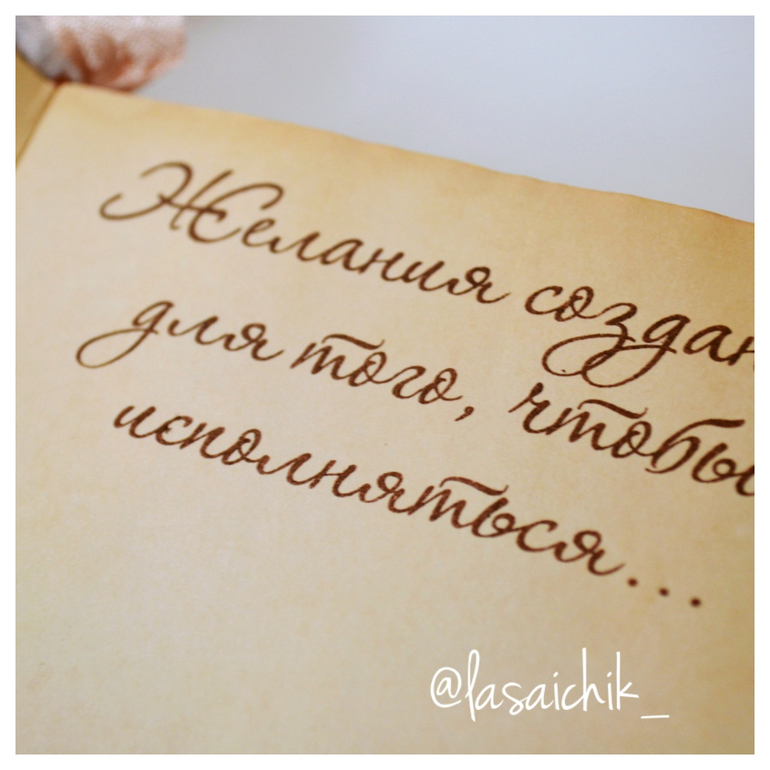 Желания создан
для того, чтобы
исполняться...
@lasaichik_